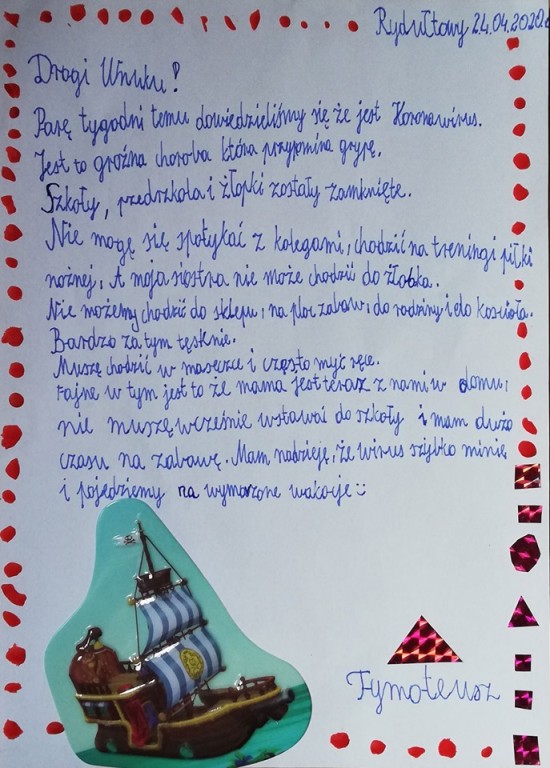 Rydułtowy 24.04.2020r
Drogi Wnuku!
Parę tygodni temu dowiedzieliśmy się że jest Koronawirus.
Jest to groźna choroba która przypomina grypę.
Szkoły, przedszkola i żłopki zostały zamknięte.
Nie mogę się spotykać z kolegami, chodzić na treningi piłki
nożnej, A moja siostra nie może chodzić do żłobka.
Nie możemy chodzić do sklepu, na plac zabaw, do rodziny i do kościoła.
Bardzo za tym tęsknie.
Muszę chodzić w maseczce i często myć ręce.
Fajne w tym jest to że mama jest teraz z nami w domu,
nie muszę wcześnie wstawać do szkoły i mam dużo
czasu na zabawę. Mam nadzieję, że wirus szybko minie
i pojedziemy na wymarzone wakacje :)
Tymoteusz